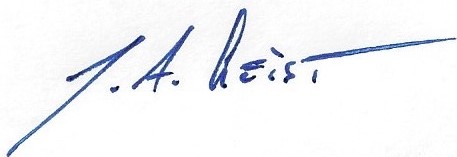 J. A. Reist